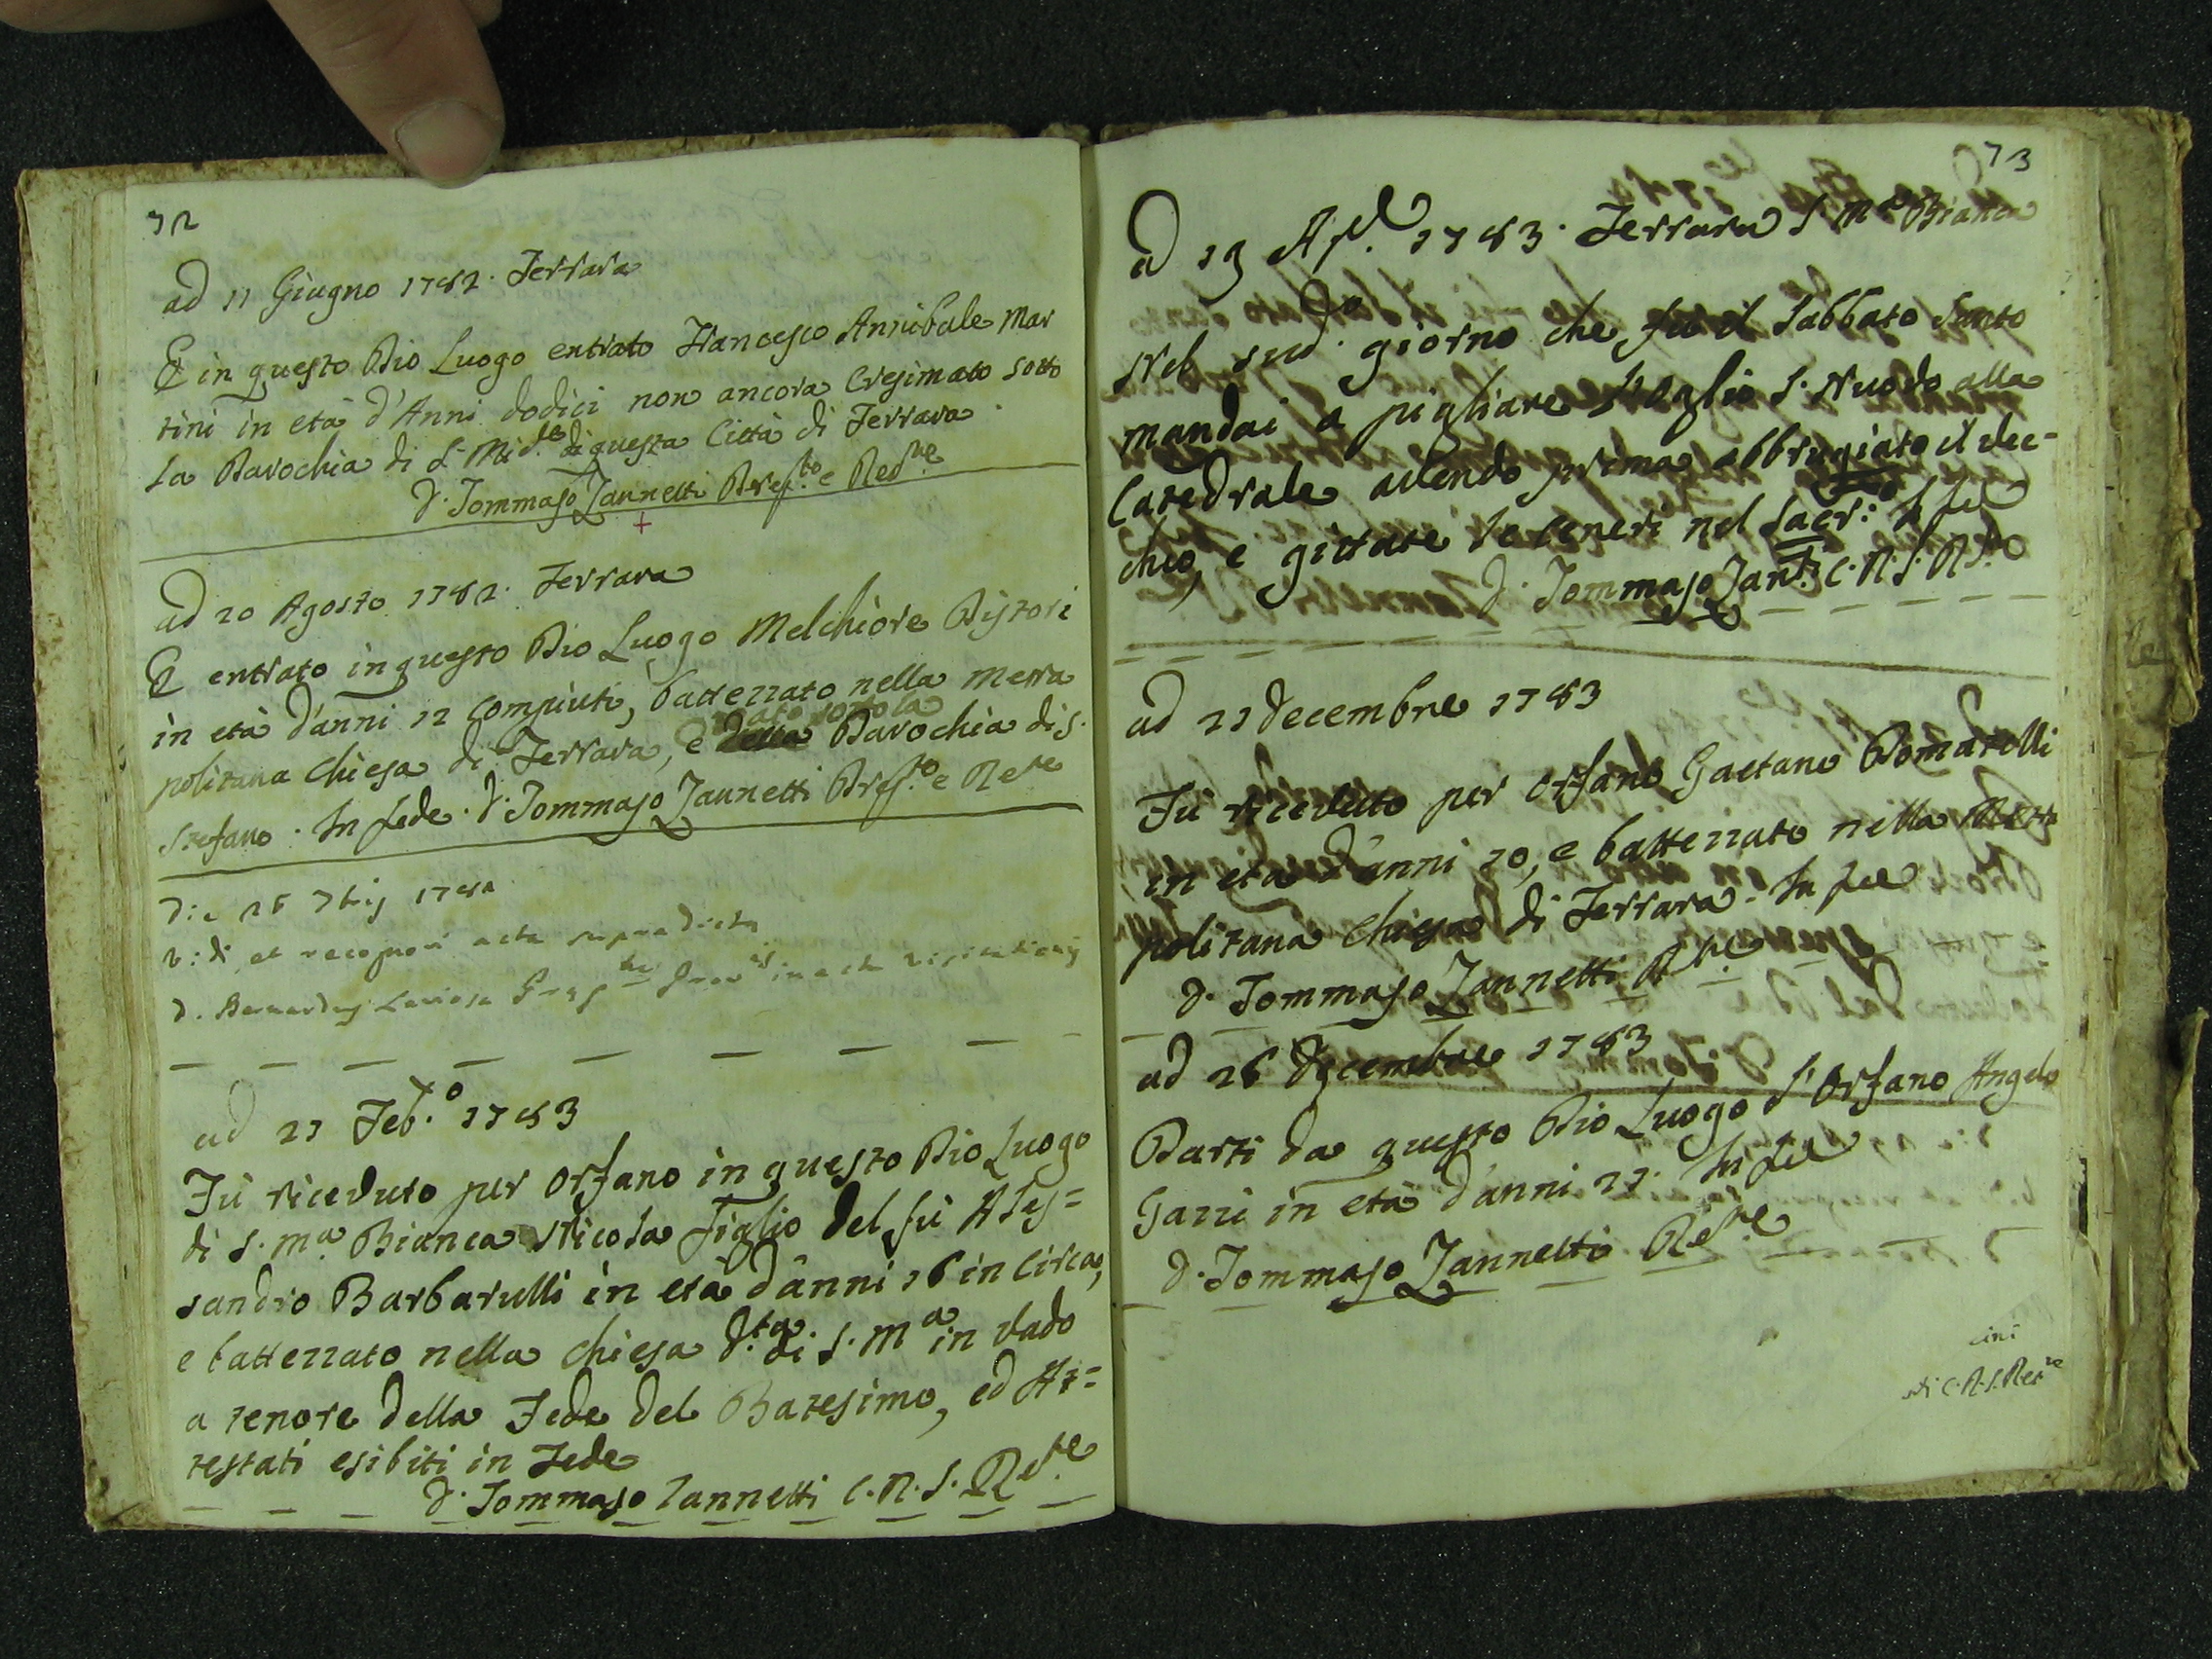 72
ad 11 Giugno 1782. Ferrara
E in questo Pio Luogo entrato Francesco Annibale Mar
tini in età d'Anni dodici non ancora Cresimato sotto
la Parochia di S. Mich.le di questa Città di Ferrara.
D. Tommaso Zannetti Prep.to e Ret.re
ad 20 Agosto 1782. Ferrara
E entrato in questo Pio Luogo Melchiore Pistori
in età d'anni 12 compiuti, battezzato nella metro
politana Chiesa di Ferrara, e nato sotto la Parochia di S.
Stefano. In fede. D. Tommaso Zannetti Prep.to e Re.re
Die 7bris 1782
Vidi, et recognovi acta supradicta
D. Bernardus Laviosa in actu visitationis
ad 21 Feb.o 1783
Fù riceduto per orfano in questo Pio Luogo
di S. M.a Bianca Nicola Figlio del fù Ales=
sandro Barbarulli in età d'anni 16 in circa,
e battezzato nella Chiesa d.ta di S. M.a in Vado
a tenore della Fede del Batesimo, ed At=
testati esibiti in Fede
D. Tommaso Zannetti C. R. S. Re.re
73
ad 19 Ap.le 1783. Ferrara S. M.a Bianca
Nel sud.o giorno che fu il Sabbato Santo
mandai a pigliare l'Oglio S. Nuovo alla
Catedrale avendo prima abbrugiato il vec-
chio, e gittate le ceneri nel Sacr.o In fed
D. Tommaso Zan.ti C. R. S. R.re
ad 21 Decembre 1783
Fù riceduto per orfano Gaetano Pomatelli
in età d'anni 10, e battezzato nella Metro
politana Chiesa di Ferrara. In fed
D. Tommaso Zannetti R.re
ad 26 Decembre 1783
Partì da questo Pio Luogo l'Orfano Angelo
in età d'anni 21. In fed
D. Tommaso Zannetti Re.re
cini
C. R. S. Ret.re